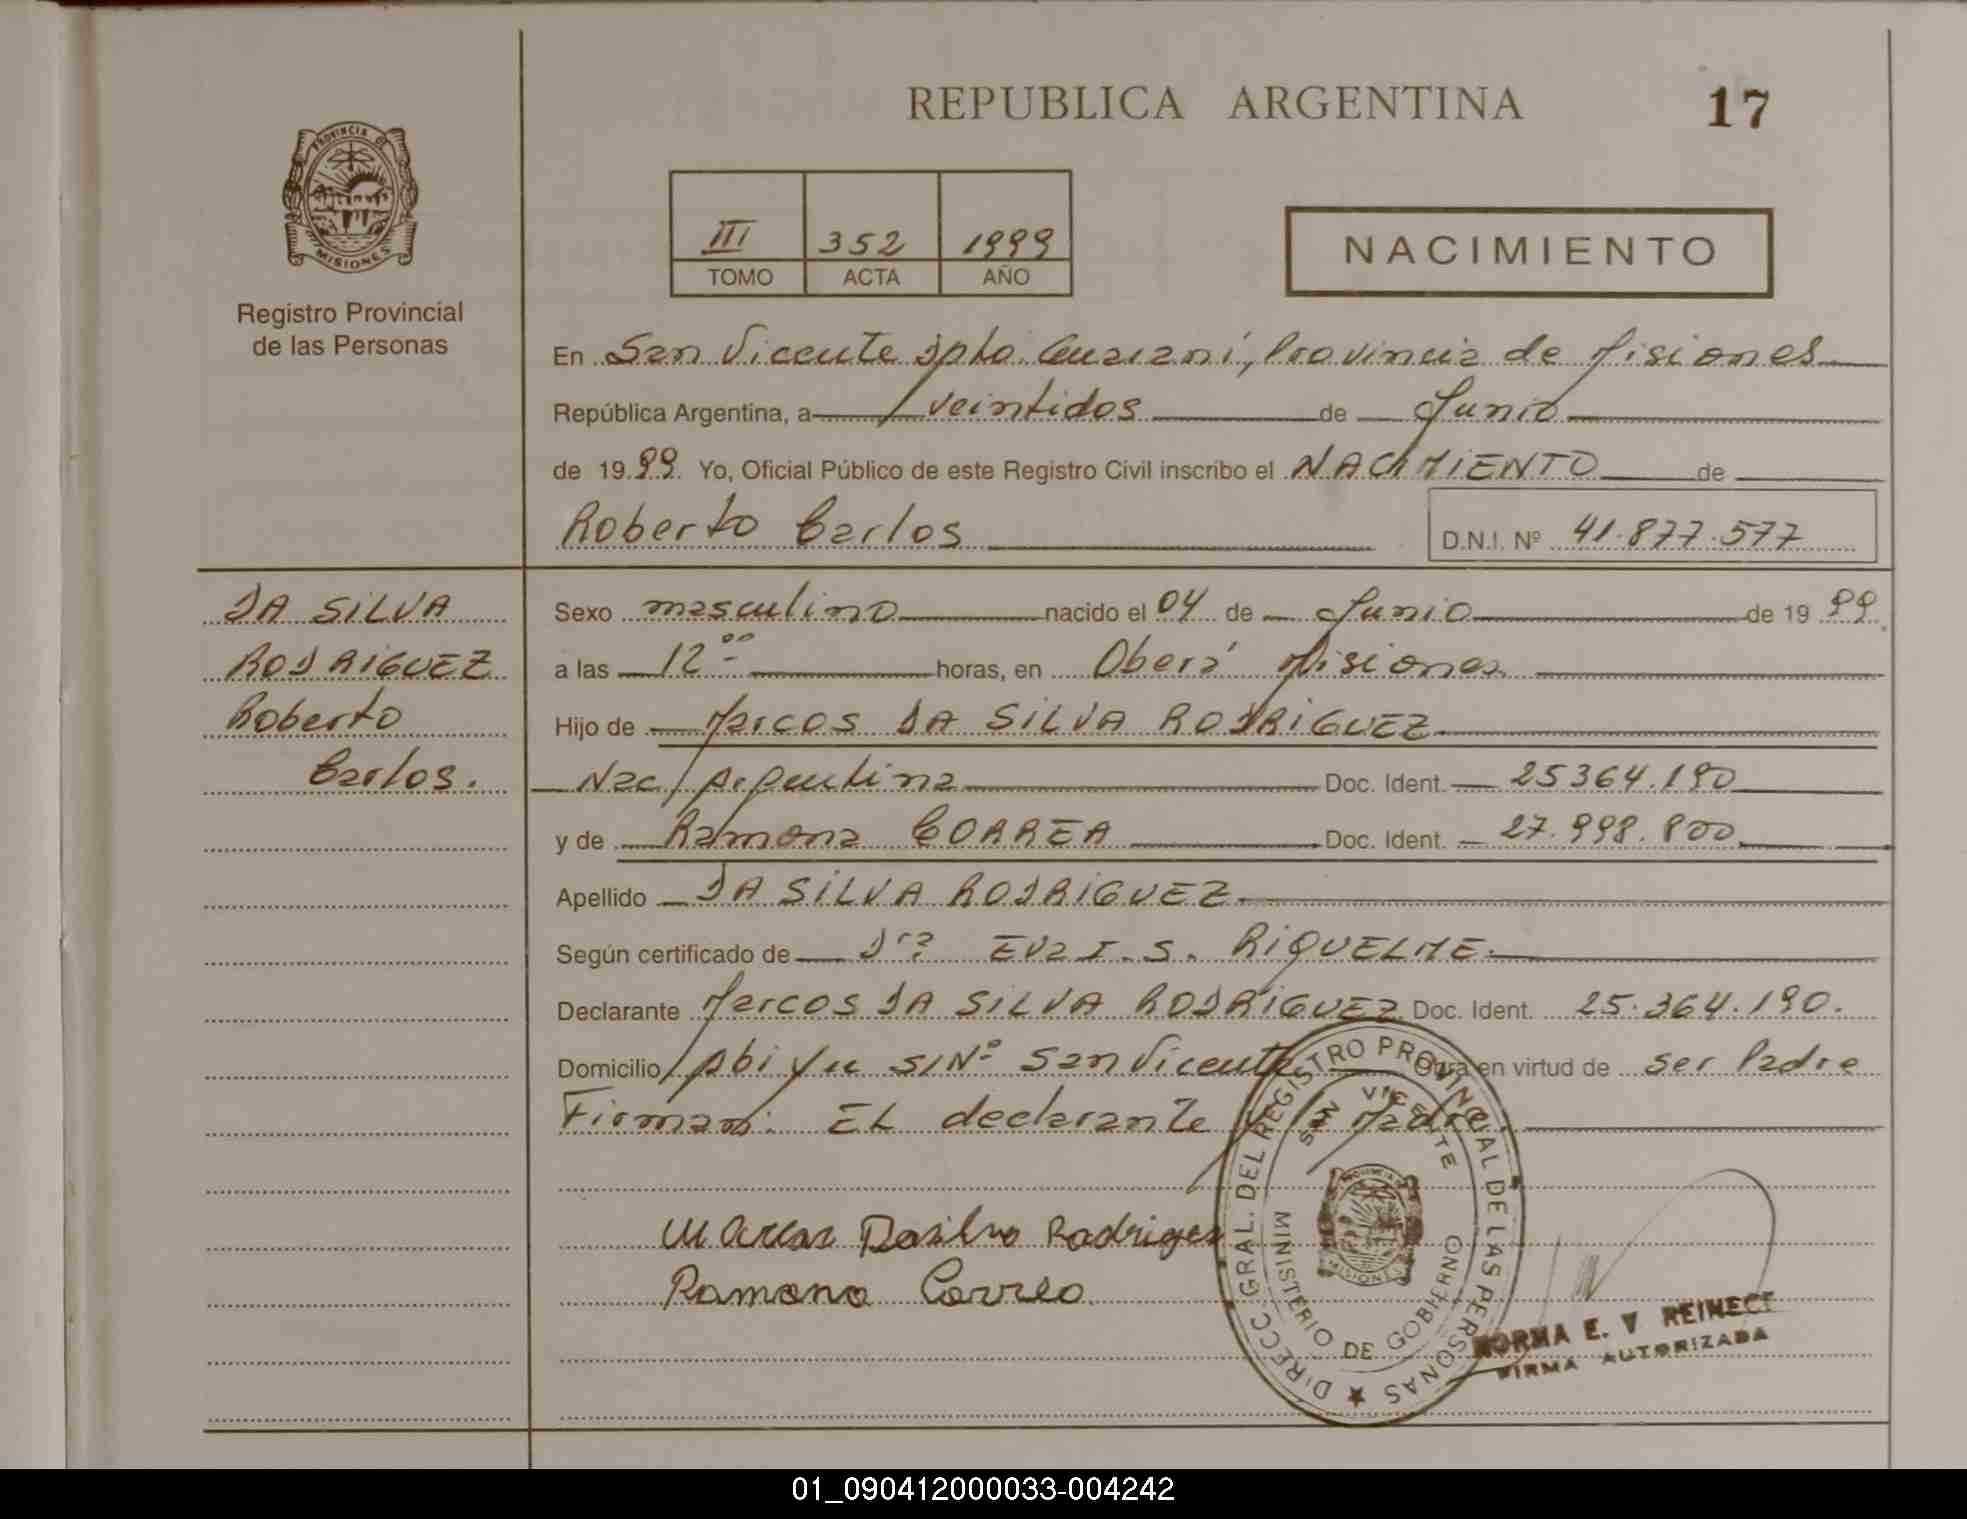 REPUBLICA ARGENTINA
17
PROVINCIA DE MISIONES
Registro Provincial
de las Personas
III 352 1999
TOMO ACTA AÑO
NACIMIENTO
En San Vicente Dpto. Guaraní, Provincia de Misiones
República Argentina, a veintidos de Junio
de 1999. Yo, Oficial Público de este Registro Civil inscribo el NACIMIENTO de
Roberto Carlos
D.N.I. Nº 41.877.577
DA SILVA
RODRIGUEZ
Roberto
Carlos.
Sexo masculino nacido el 04 de Junio de 1999
a las 12:00 horas, en Oberá Misiones
Hijo de Marcos DA SILVA RODRIGUEZ
Nac/Argentina Doc. Ident. 25364.190
y de Ramona CORREA Doc. Ident. 27.998.800
Apellido DA SILVA RODRIGUEZ
Según certificado de Dra EVa I. S. RIQUELME
Declarante Marcos DA SILVA RODRIGUEZ Doc. Ident. 25.364.190.
Domicilio Abi Yu S/Nº San Vicente Obra en virtud de ser Padre
Firman: EL declarante y la Madre.
Marcos Dasilva Rodriges
Ramona Correa
DIRECC. GRAL. DEL REGISTRO PROVINCIAL DE LAS PERSONAS
SAN VICENTE
PROVINCIA DE MISIONES
MINISTERIO DE GOBIERNO
NORMA E. V REINECK
FIRMA AUTORIZADA
01_090412000033-004242